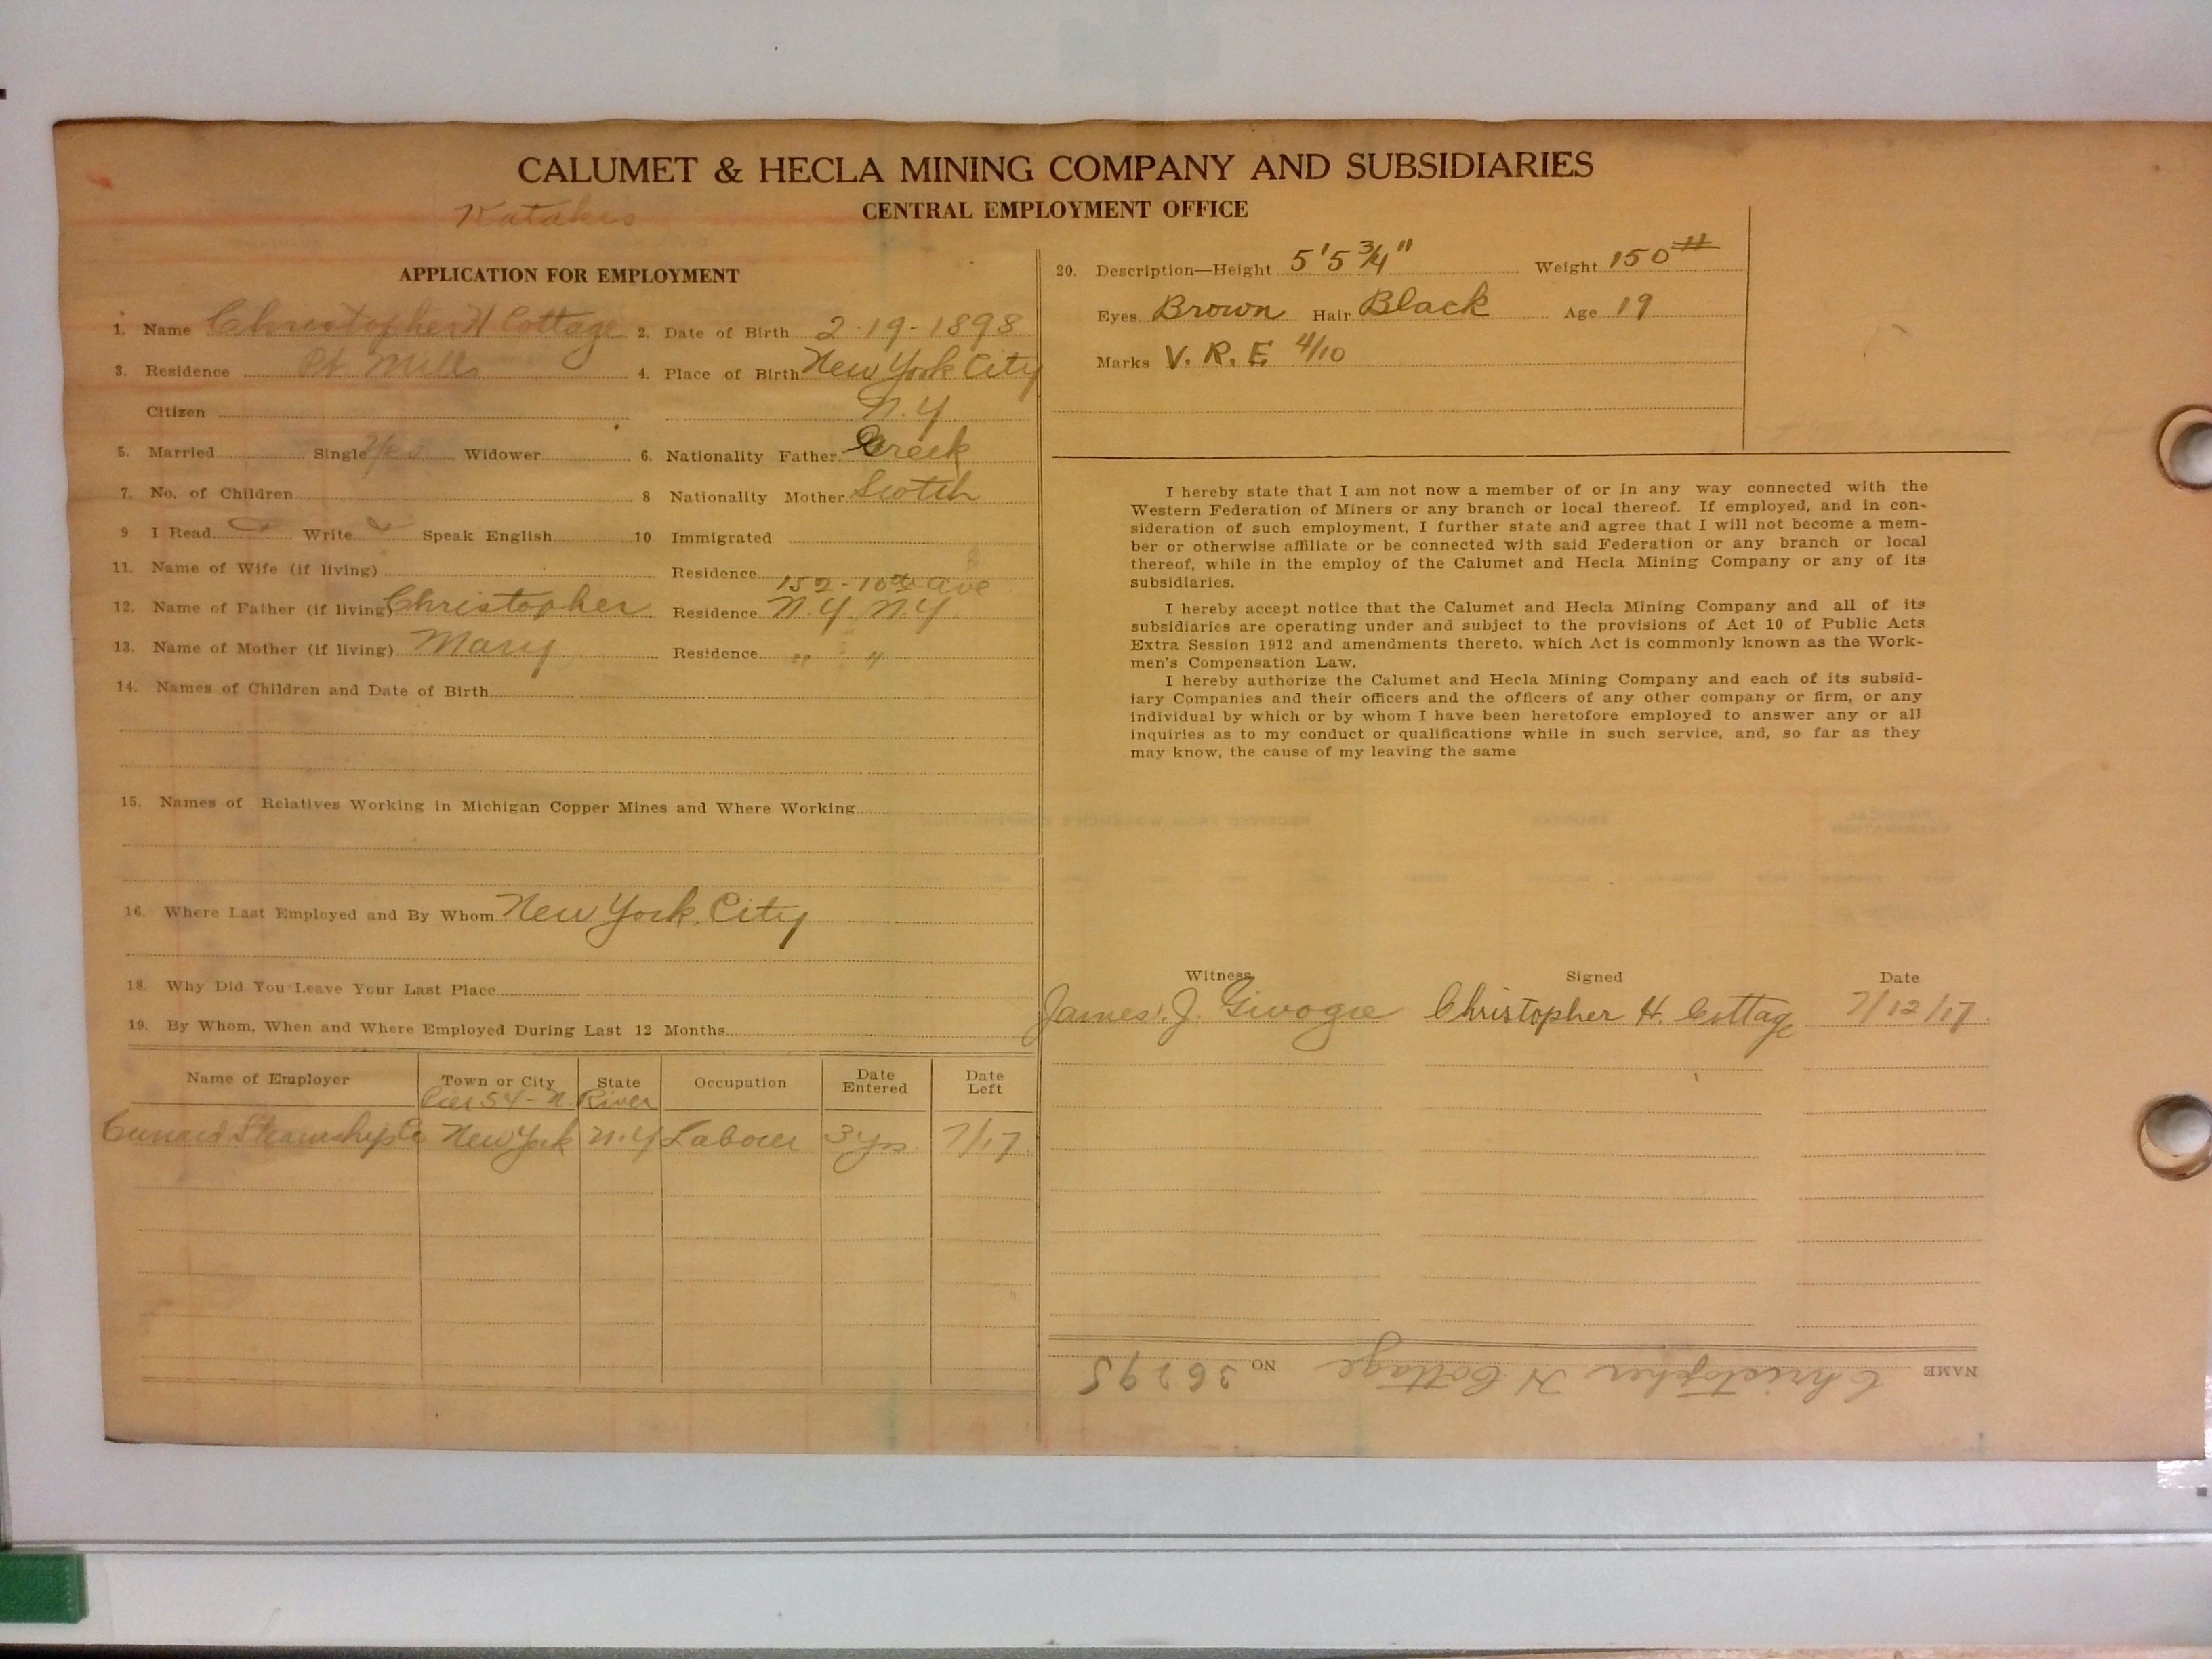 CALUMET & HECLA MINING COMPANY AND SUBSIDIARIES
Katakis
CENTRAL EMPLOYMENT OFFICE
APPLICATION FOR EMPLOYMENT
1. Name Christopher H Cottage 2. Date of Birth 2-19-1898
3. Residence Pt Mills 4. Place of Birth New York City
Citizen N.Y
5. Married Single Yes Widower 6. Nationality Father Greek
7. No. of Children 8 Nationality Mother Scotch
9 I Read Write Speak English 10 Immigrated
11. Name of Wife (if living) Residence
152-10th Ave
12. Name of Father (if living) Christopher Residence N.Y. N.Y.
13. Name of Mother (if living) Mary Residence " "
14. Names of Children and Date of Birth
15. Names of Relatives Working in Michigan Copper Mines and Where Working
16. Where Last Employed and By Whom New York City
18. Why Did You Leave Your Last Place
19. By Whom, When and Where Employed During Last 12 Months
Name of Employer Town or City State Occupation Date Entered Date Left
Pier 54-N. River
Cunard Steamship Co New York N.Y Laborer 3 yrs. 7/17
20. Description—Height 5'5 3/4" Weight 150#
Eyes Brown Hair Black Age 19
Marks V. R. E 4/10
I hereby state that I am not now a member of or in any way connected with the
Western Federation of Miners or any branch or local thereof. If employed, and in con-
sideration of such employment, I further state and agree that I will not become a mem-
ber or otherwise affiliate or be connected with said Federation or any branch or local
thereof, while in the employ of the Calumet and Hecla Mining Company or any of its
subsidiaries.
I hereby accept notice that the Calumet and Hecla Mining Company and all of its
subsidiaries are operating under and subject to the provisions of Act 10 of Public Acts
Extra Session 1912 and amendments thereto, which Act is commonly known as the Work-
men's Compensation Law.
I hereby authorize the Calumet and Hecla Mining Company and each of its subsid-
iary Companies and their officers and the officers of any other company or firm, or any
individual by which or by whom I have been heretofore employed to answer any or all
inquiries as to my conduct or qualifications while in such service, and, so far as they
may know, the cause of my leaving the same
Witness Signed Date
James J. Christopher H. Cottage 7/12/17
NAME Christopher H Cottage NO 36295